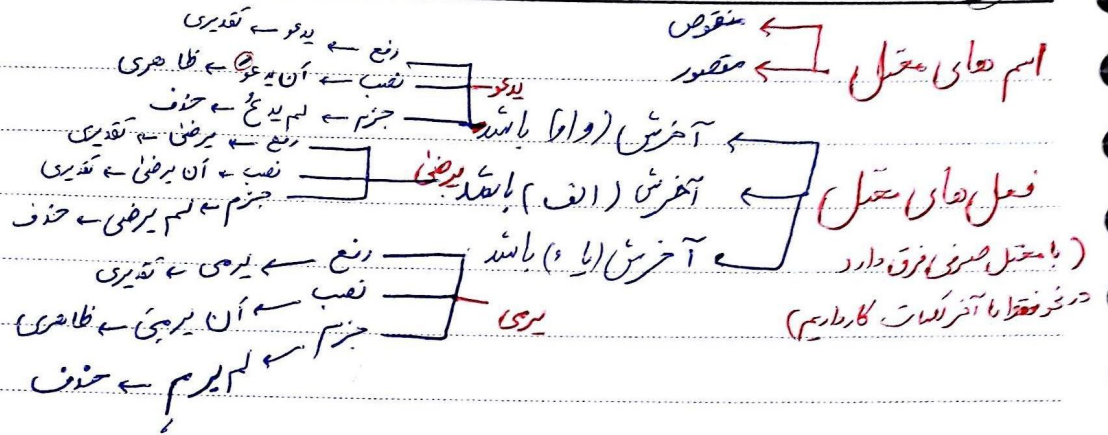 اسم های معتل
منقوص
مقصور
فعل های معتل
(با معتل صرفی فرق دارد
در نحو فقط با آخر کلمات کار داریم)
آخرش (واو) باشد
یدعو
رفع ← یدعو ← تقدیری
نصب ← أن یدعوَ ← ظاهری
جزم ← لم یدعُ ← حذف
آخرش (الف) باشد
یرضیٰ
رفع ← یرضیٰ ← تقدیری
نصب ← أن یرضیٰ ← تقدیری
جزم ← لم یرضی ← حذف
آخرش (یاء) باشد
یرمی
رفع ← یرمی ← تقدیری
نصب ← أن یرمیَ ← ظاهری
جزم ← لم یرمِ ← حذف